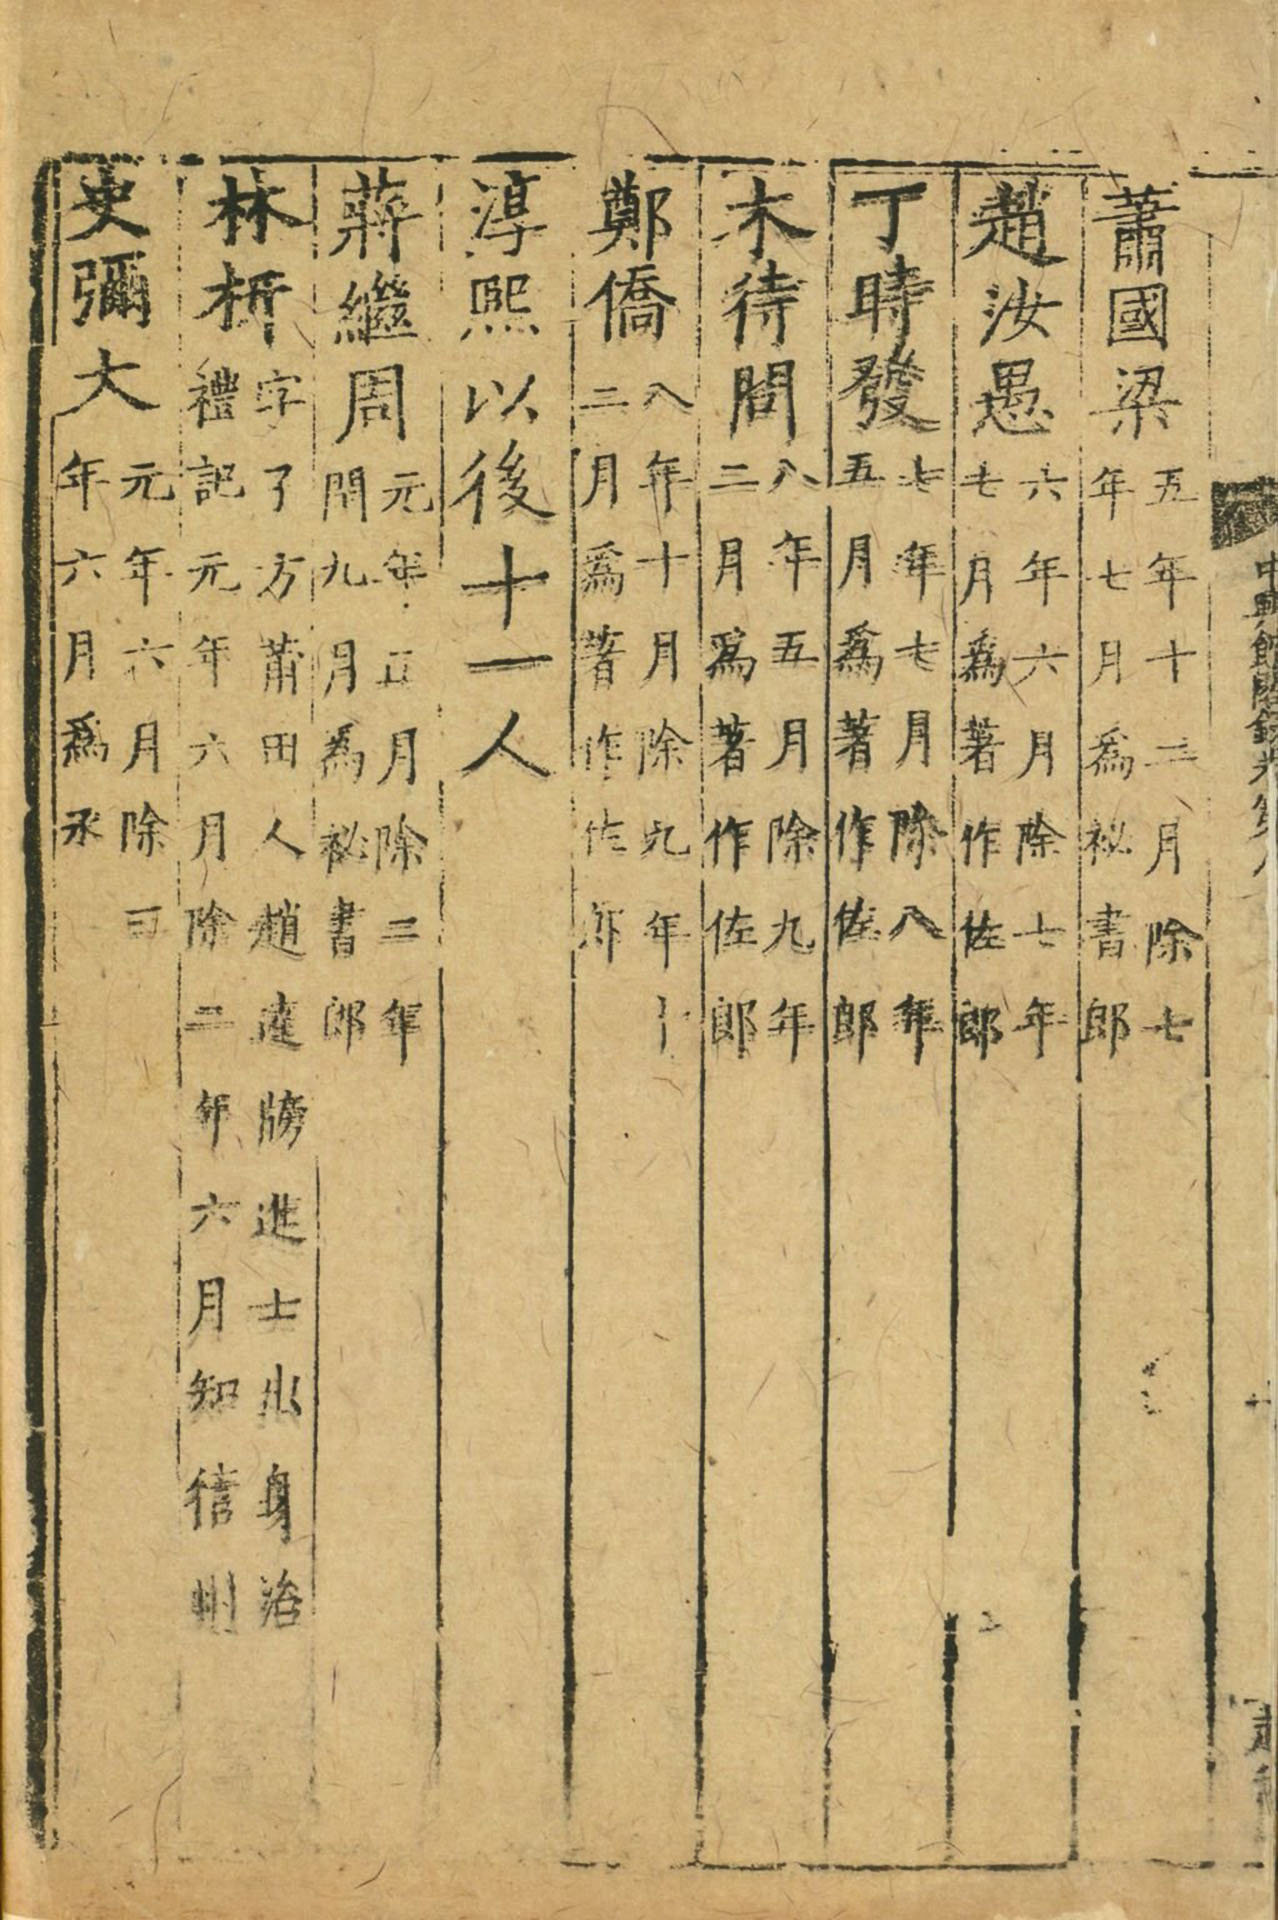 蕭國梁五年十二月除七年七月爲祕書郎
趙汝愚六年六月除七年七月爲著作佐郎
丁時發七年七月除八年五月爲著作佐郎
木待問八年五月除九年二月爲著作佐郎
鄭僑八年十月除九年二月爲著作佐郎
淳熙以後十一人
蔣繼周元年正月除二年閏九月為祕書郎
林枅字子方莆田人趙逵牓進士出身治禮記元年六月除二年六月知信州
史彌大元年六月除年六月爲丞
中興館閣錄卷第八